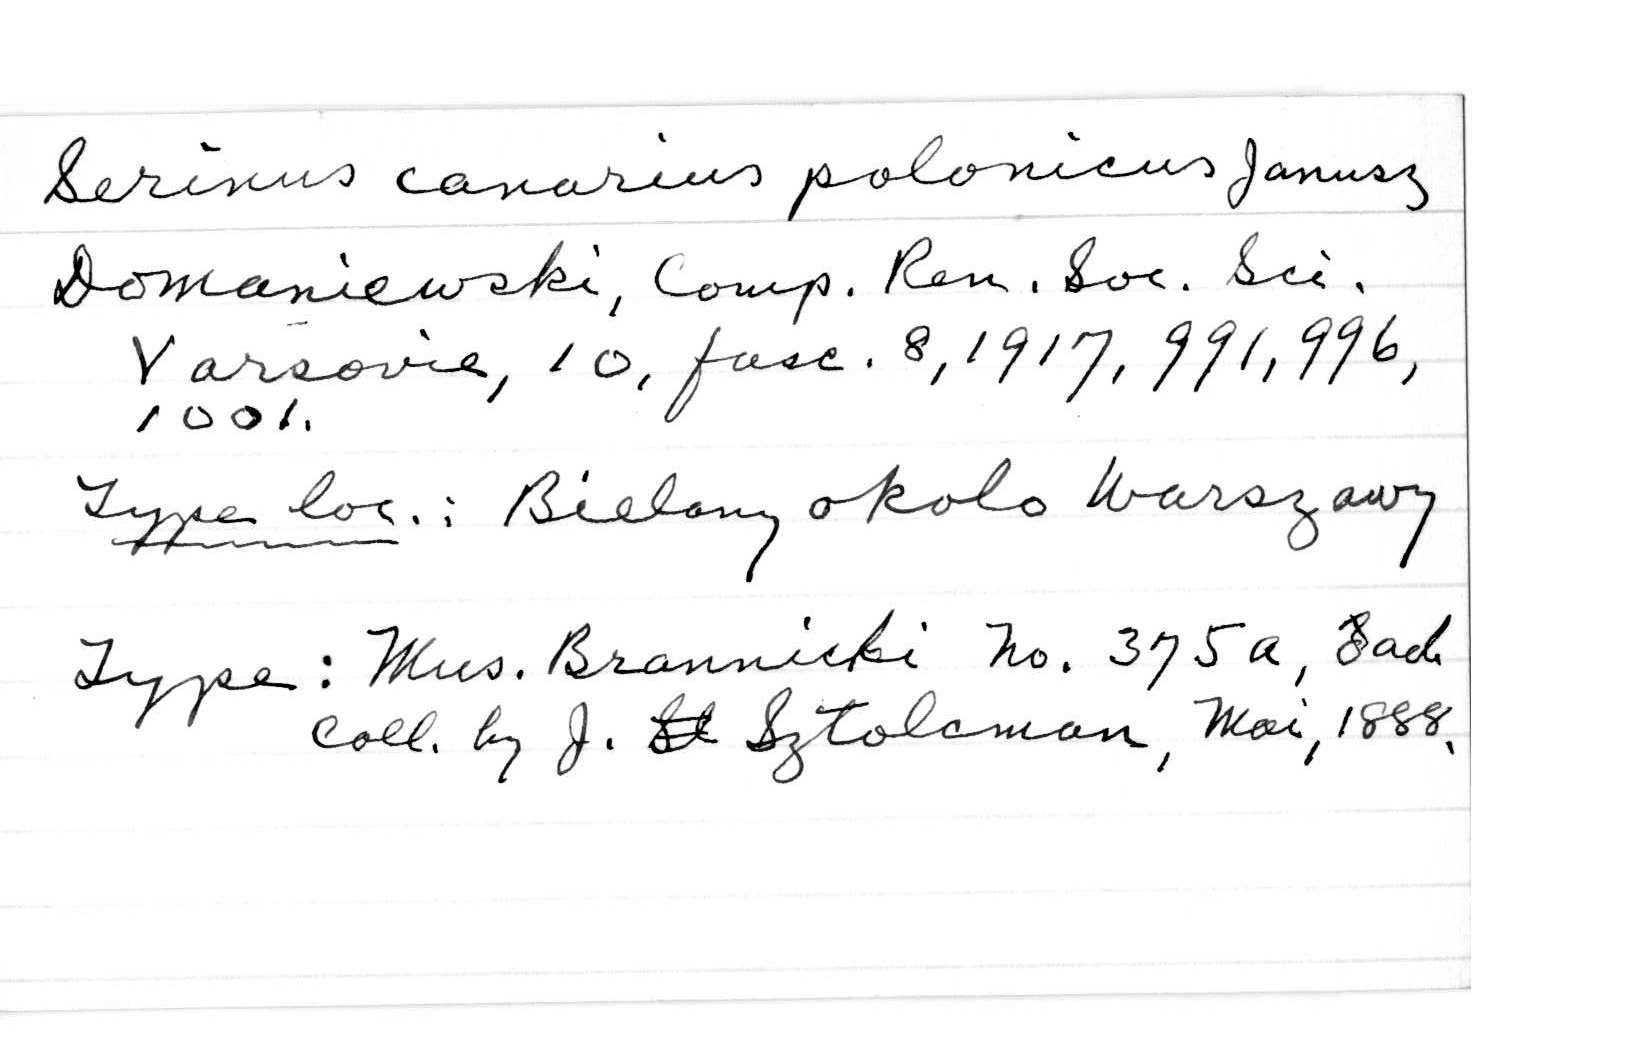 Serinus canarius polonicus Janusz
Domaniewski, Comp. Ren. Soc. Sci.
Varsovie, 10, fasc. 8, 1917, 991, 996,
1001.
Type loc.: Bielany okolo Warszawy
Type: Mus. Brannicki No. 375a, ♂ ad.
Coll. by J. Sztolcman, Mai, 1888.